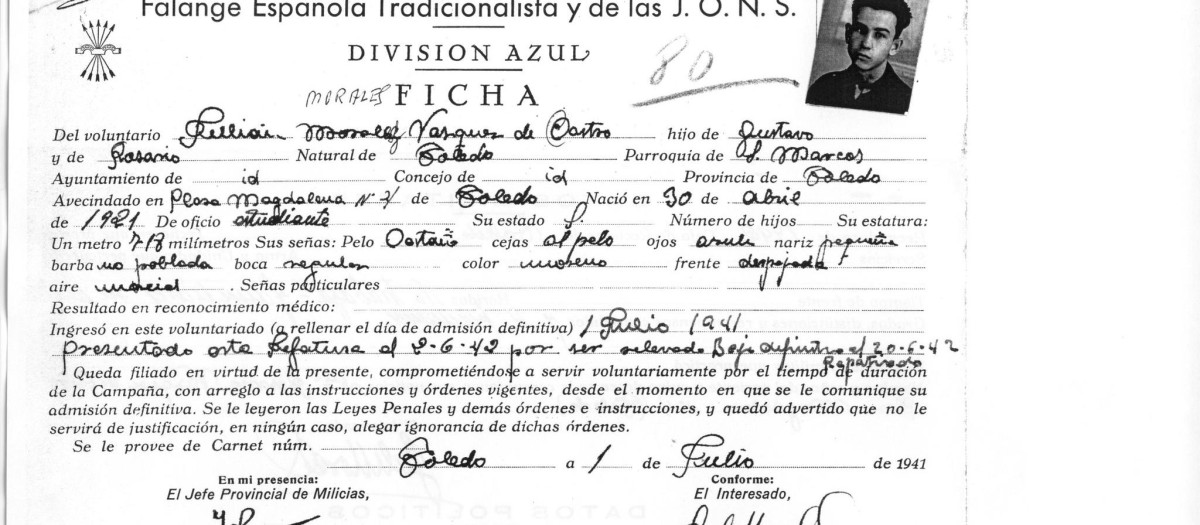 Falange Española Tradicionalista y de las J. O. N. S.
DIVISION AZUL
80
MORALES FICHA
Del voluntario Morales Vazquez de Castro hijo de Gustavo
y de Rosario Natural de Toledo Parroquia de S. Marcos
Ayuntamiento de id Concejo de id Provincia de Toledo
Avecindado en Plaza Magdalena Nº de Toledo Nació en 30 de abril
de 1921 De oficio estudiante Su estado S. Número de hijos Su estatura:
Un metro 718 milímetros Sus señas: Pelo Castaño cejas al pelo ojos azule nariz pequeña
barba no poblada boca regular color moreno frente despejada
aire marcial . Señas particulares
Resultado en reconocimiento médico:
Ingresó en este voluntariado (a rellenar el día de admisión definitiva) 1 Julio 1941
presentado esta Jefatura el 2-6-42 por ser relevado Baja definitiva el 20-6-42
Repatriado
Queda filiado en virtud de la presente, comprometiéndose a servir voluntariamente por el tiempo de duración
de la Campaña, con arreglo a las instrucciones y órdenes vigentes, desde el momento en que se le comunique su
admisión definitiva. Se le leyeron las Leyes Penales y demás órdenes e instrucciones, y quedó advertido que no le
servirá de justificación, en ningún caso, alegar ignorancia de dichas órdenes.
Se le provee de Carnet núm.
Toledo a 1 de Julio de 1941
En mi presencia: Conforme:
El Jefe Provincial de Milicias, El Interesado,